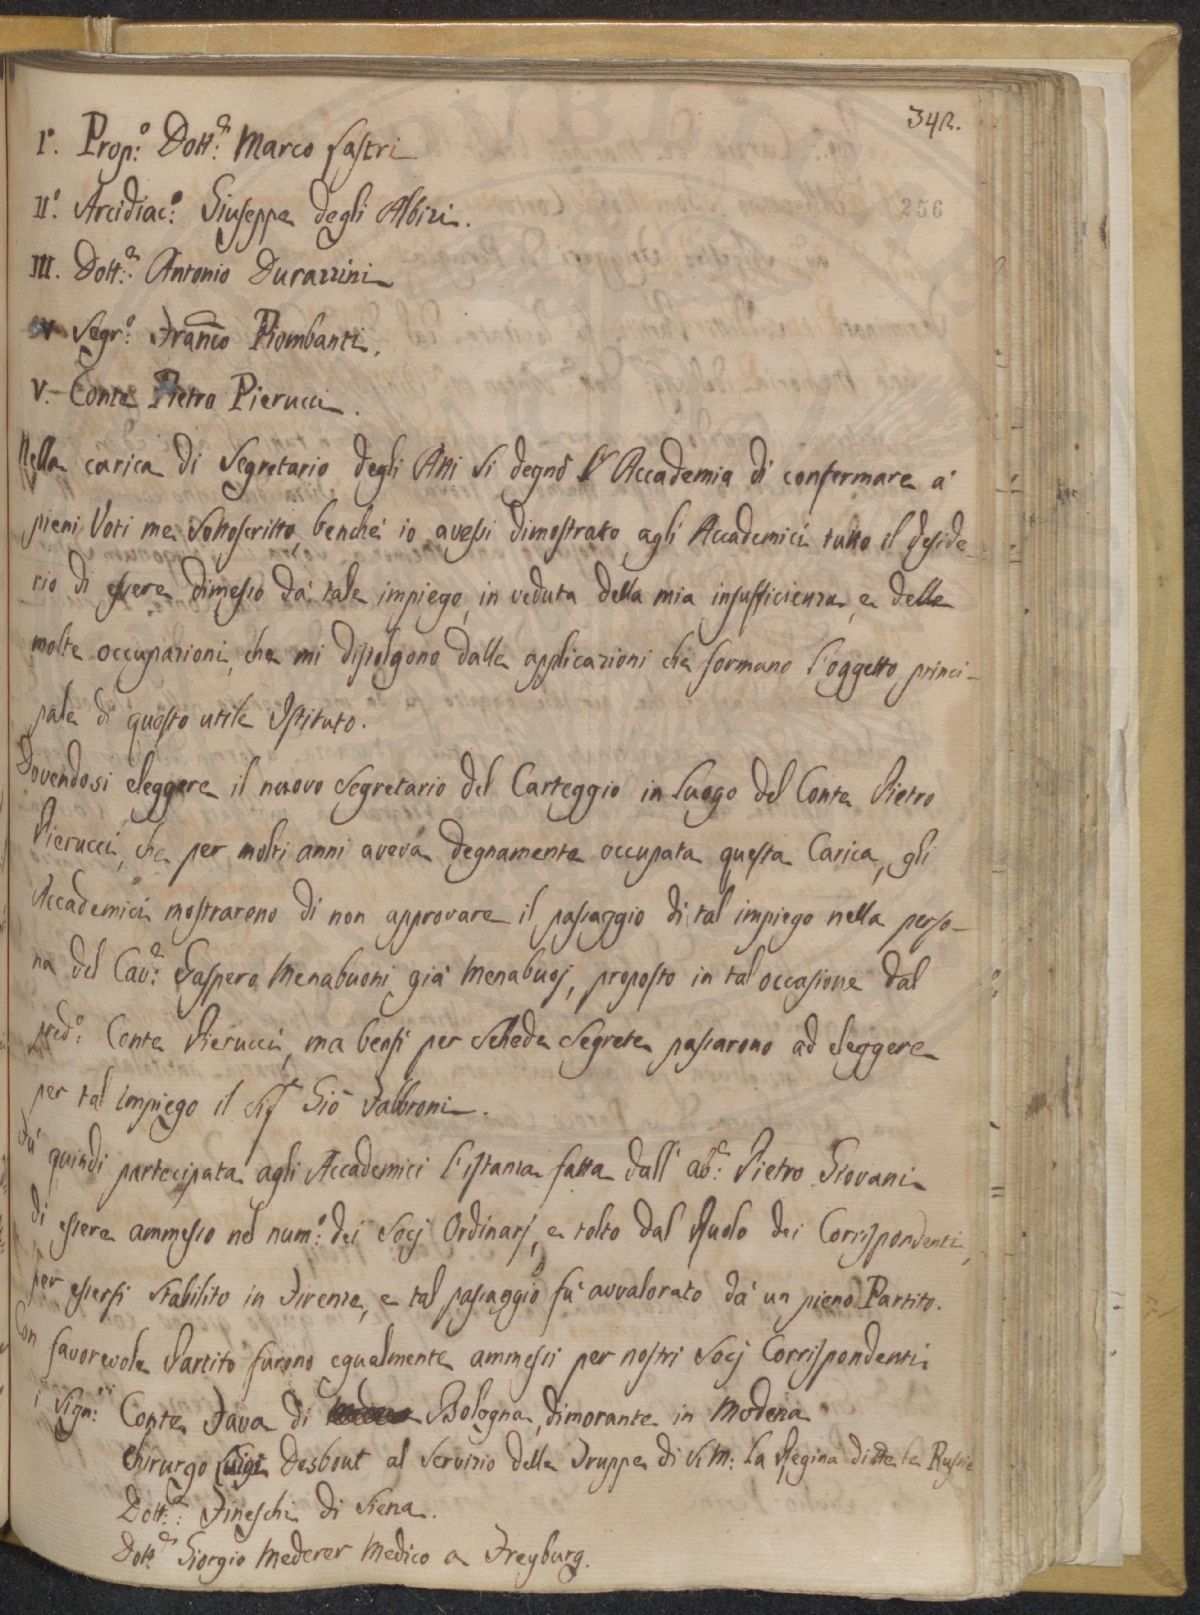 342.
256
I°. Prop:° Dott:r Marco Lastri
II°. Arcidiac:° Giuseppe degli Albizi.
III. Dott:r Antonio Durazzini
V Segr:° Franco Piombanti.
V. Conte Pietro Pierucci.
Nella carica di Segretario degli Atti si degnò l'Accademia di confermare a
pieni Voti me Sottoscritto, benchè io avessi dimostrato agli Accademici tutto il deside-
rio di essere dimesso da tale impiego, in veduta della mia insufficienza, e delle
molte occupazioni, che mi distolgono dalle applicazioni che formano l'oggetto princi-
pale di questo utile Istituto.
Dovendosi eleggere il nuovo Segretario del Carteggio in luogo del Conte Pietro
Pierucci, che per molti anni aveva degnamente occupata questa Carica, gli
Accademici mostrarono di non approvare il passaggio di tal impiego nella perso-
na del Cav:r Gaspero Menabuoni già Menabuoj, proposto in tal occasione dal
pred:° Conte Pierucci, ma bensì per Schede Segrete passarono ad eleggere
per tal impiego il Sigr Gio Fabbroni.
Fu quindi partecipata agli Accademici l'istanza fatta dall' ab:e Pietro Giovani
di essere ammesso nel num:° dei Socj Ordinarj, e tolto dal Ruolo dei Corrispondenti,
per essersi stabilito in Firenze, e tal passaggio fù avvalorato da un pieno Partito.
Con favorevole Partito furono egualmente ammessi per nostri Socj Corrispondenti
i Sign:ri Conte Fava di Bologna, dimorante in Modena
Chirurgo Luigi Desbout al Servizio delle Truppe di S: M: la Regina di tte le Russie
Dott:r Fineschi di Siena.
Dott:r Giorgio Mederer Medico a Freyburg.